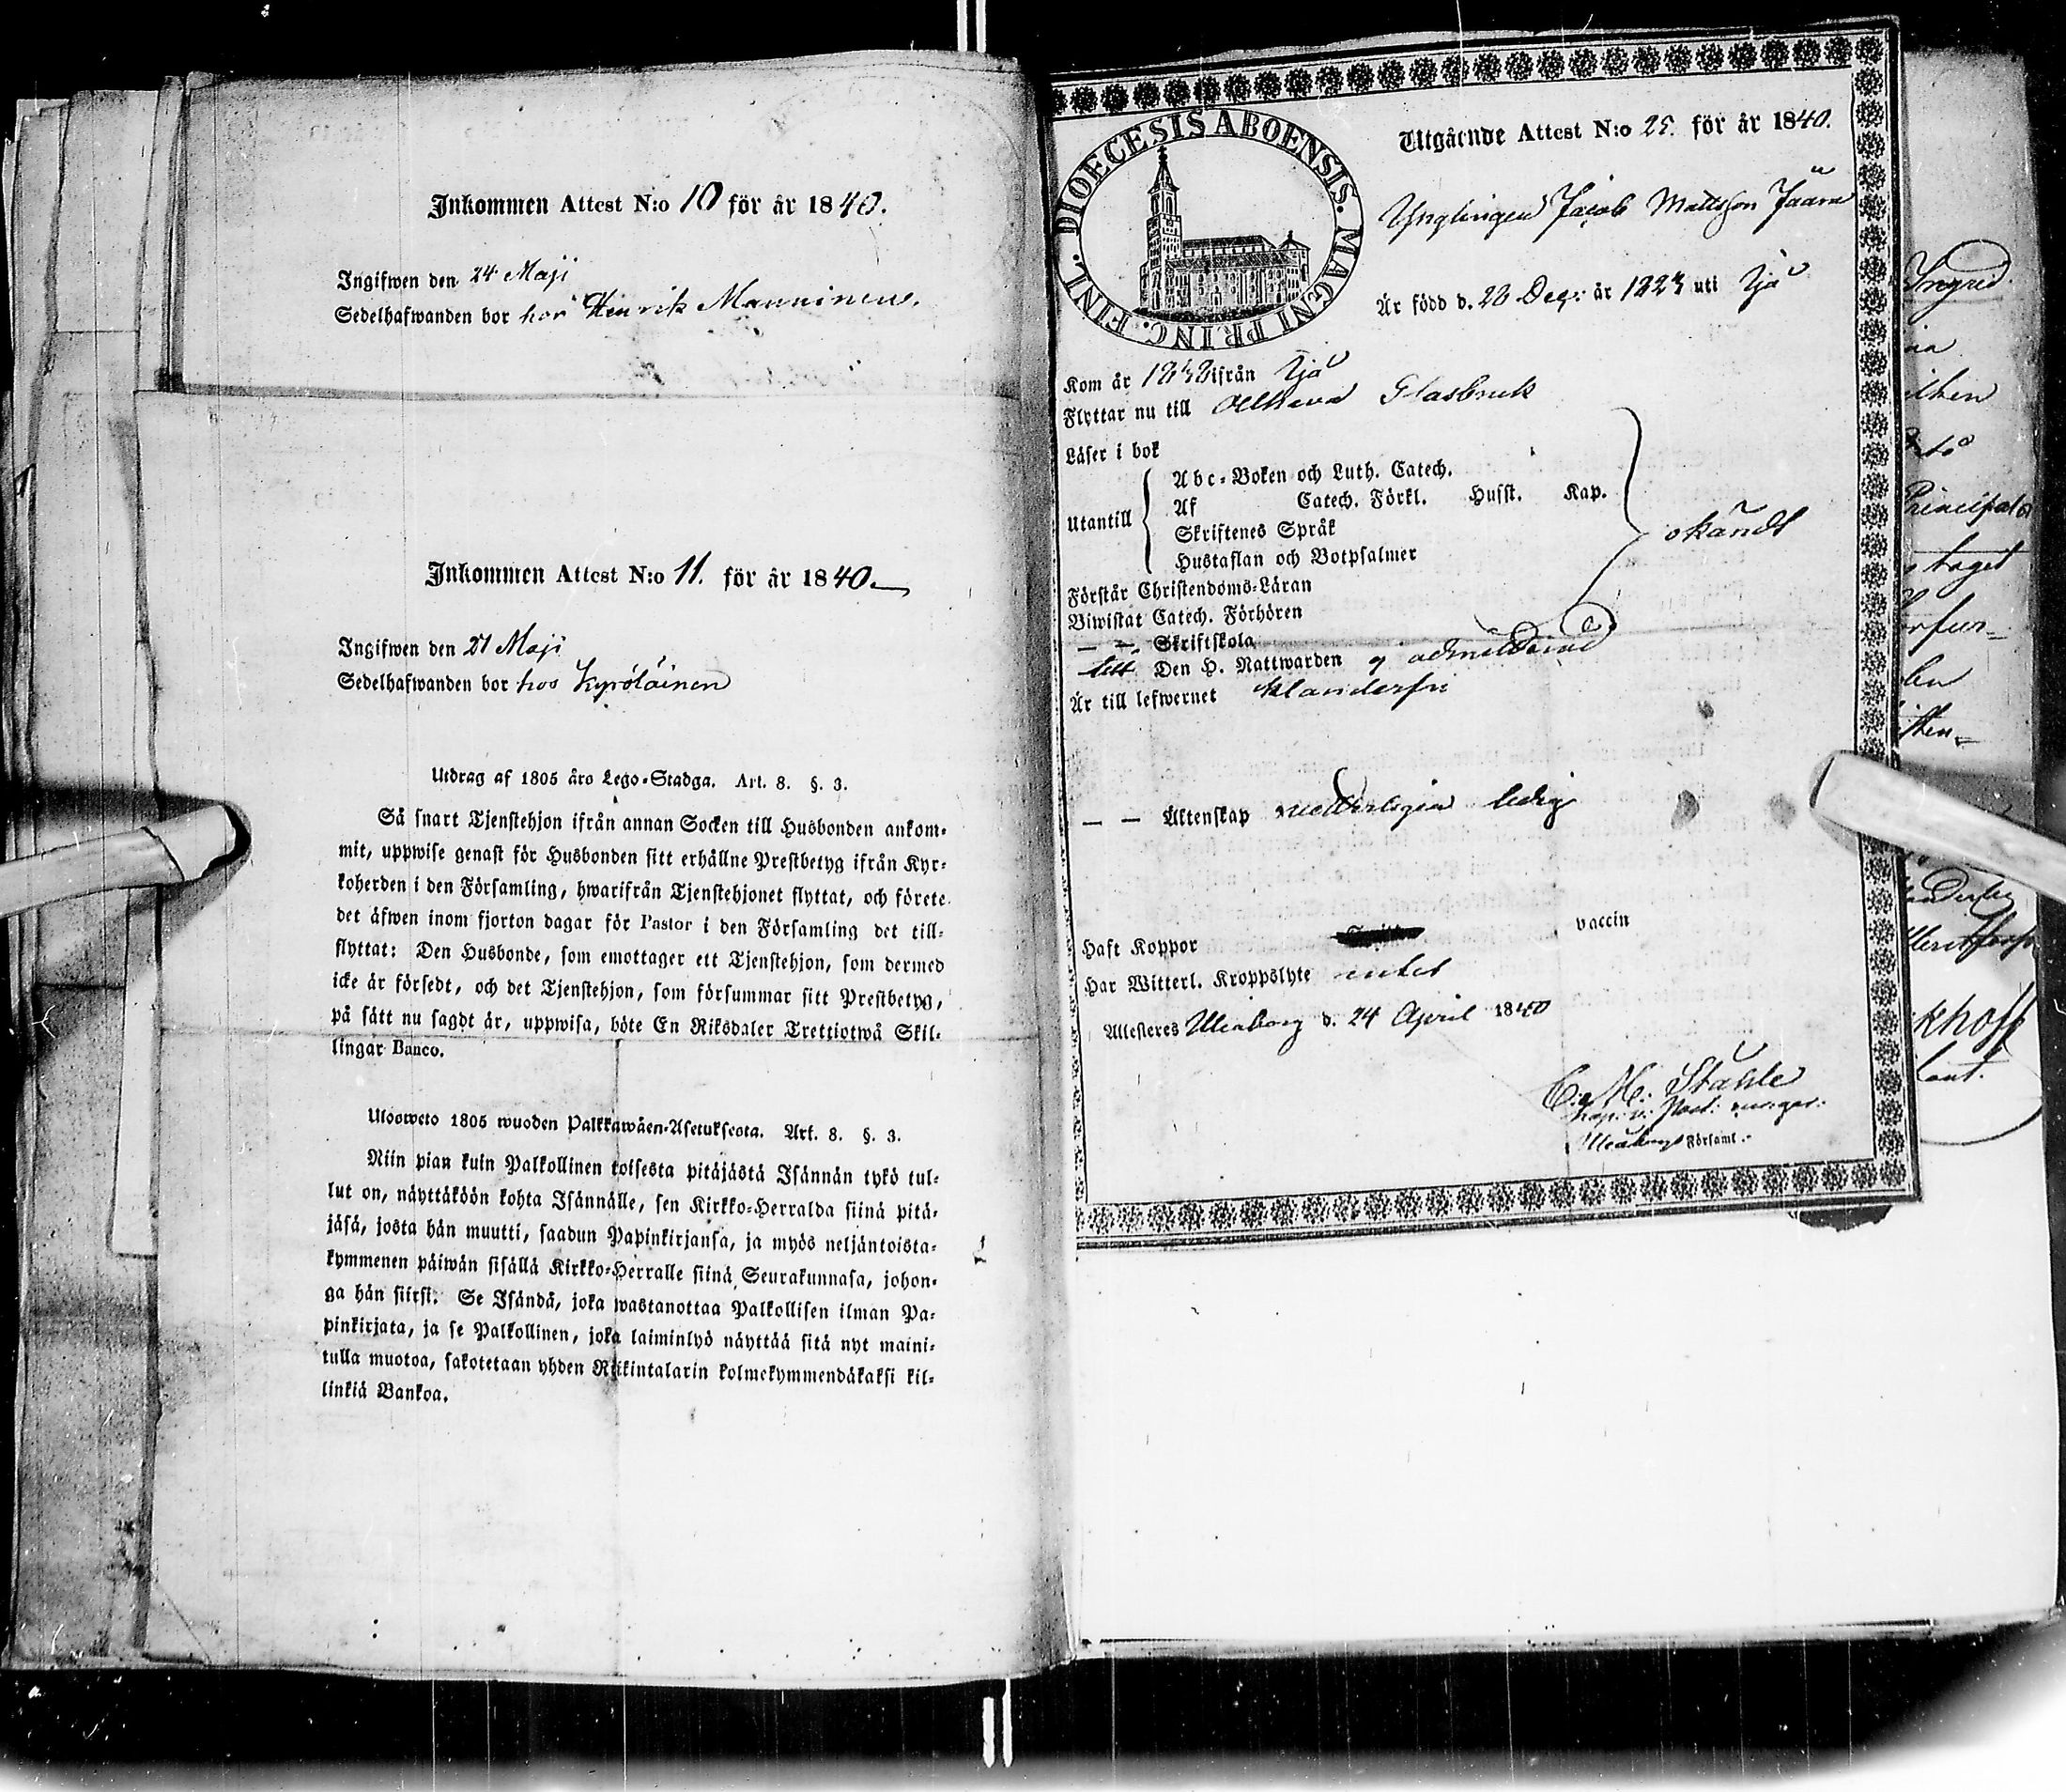 Inkommen Attest N:o 10 för år 1840.
Ingifwen den 24 Maji
Sedelhafwanden bor hos Henrik Manninen.
Inkommen Attest N:o 11. för år 1840.
Ingifwen den 27 Maji
Sedelhafwanden bor hos Kyröläinen
Utdrag af 1805 års Lego-Stadga. Art. 8. §. 3.
Så snart Tjenstehjon ifrån annan Socken till Husbonden ankom-
mit, uppwise genast för Husbonden sitt erhållne Prestbetyg ifrån Kyr-
koherden i den Församling, hwarifrån Tjenstehjonet flyttat, och förete
det äfwen inom fjorton dagar för Pastor i den Församling det till-
flyttat: Den Husbonde, som emottager ett Tjenstehjon, som dermed
icke är försedt, och det Tjenstehjon, som försummar sitt Prestbetyg,
på sätt nu sagdt är, uppwisa, böte En Riksdaler Trettiotwå Skil-
lingar Banco.
Ulosweto 1805 wuoden Palkkawäen-Asetuksesta. Art. 8. §. 3.
Niin pian kuin Palkollinen toisesta pitäjästä Isännän tykö tul-
lut on, näyttäköön kohta Isännälle, sen Kirkko-Herralda siinä pitä-
jäsä, josta hän muutti, saadun Papinkirjansa, ja myös neljäntoista-
kymmenen päiwän sisällä Kirkko-Herralle siinä Seurakunnasa, johon-
ga hän siirsi. Se Isändä, joka wastanottaa Palkollisen ilman Pa-
pinkirjata, ja se Palkollinen, joka laiminlyö näyttää sitä nyt maini-
tulla muotoa, sakotetaan yhden Riikintalarin kolmekymmendäkaksi kil-
linkiä Bankoa.
DIOECESIS ABOENSIS. MAGNI PRINC. FINL.
Utgående Attest N:o 25. för år 1840.
Ynglingen Jacob Mattsson
Är född d. 28 Dec: år 1823 uti Ijå
Kom år 1838 ifrån Ijå
Flyttar nu till Olhava Glasbruk
Läser i bok
Utantill
Abc-Boken och Luth. Catech.
Af Catech. Förkl. Husst. Kap.
Skriftenes Språk
Hustaflan och Botpsalmer
Förstår Christendoms-Läran
Biwistat Catech. Förhören
— — Skriftskola
Den H. Nattwarden ej admitterad
Är till lefwernet klanderfri
— — Äktenskap ledig
Haft Koppor vaccin
Har Witterl. Kroppslyte intet
Attesteres Uleåborg d. 24 April 1840
C. M. Ståhle
Uleåborgs Församl.
Ingrid
Principal
taget
khoff